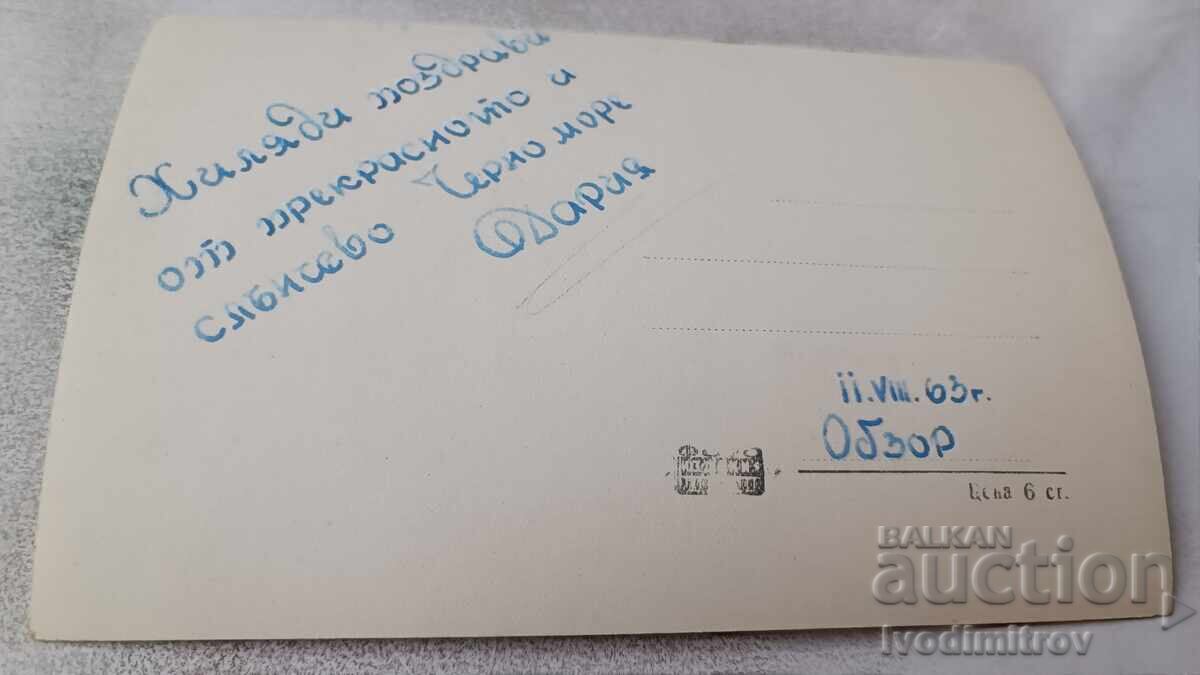 Хиляди поздрави
от прекрасното и
слънчево Черно море
Дария
11.VIII.63г.
Обзор
Цена 6 ст.
BALKAN
auction
Ivodimitrov